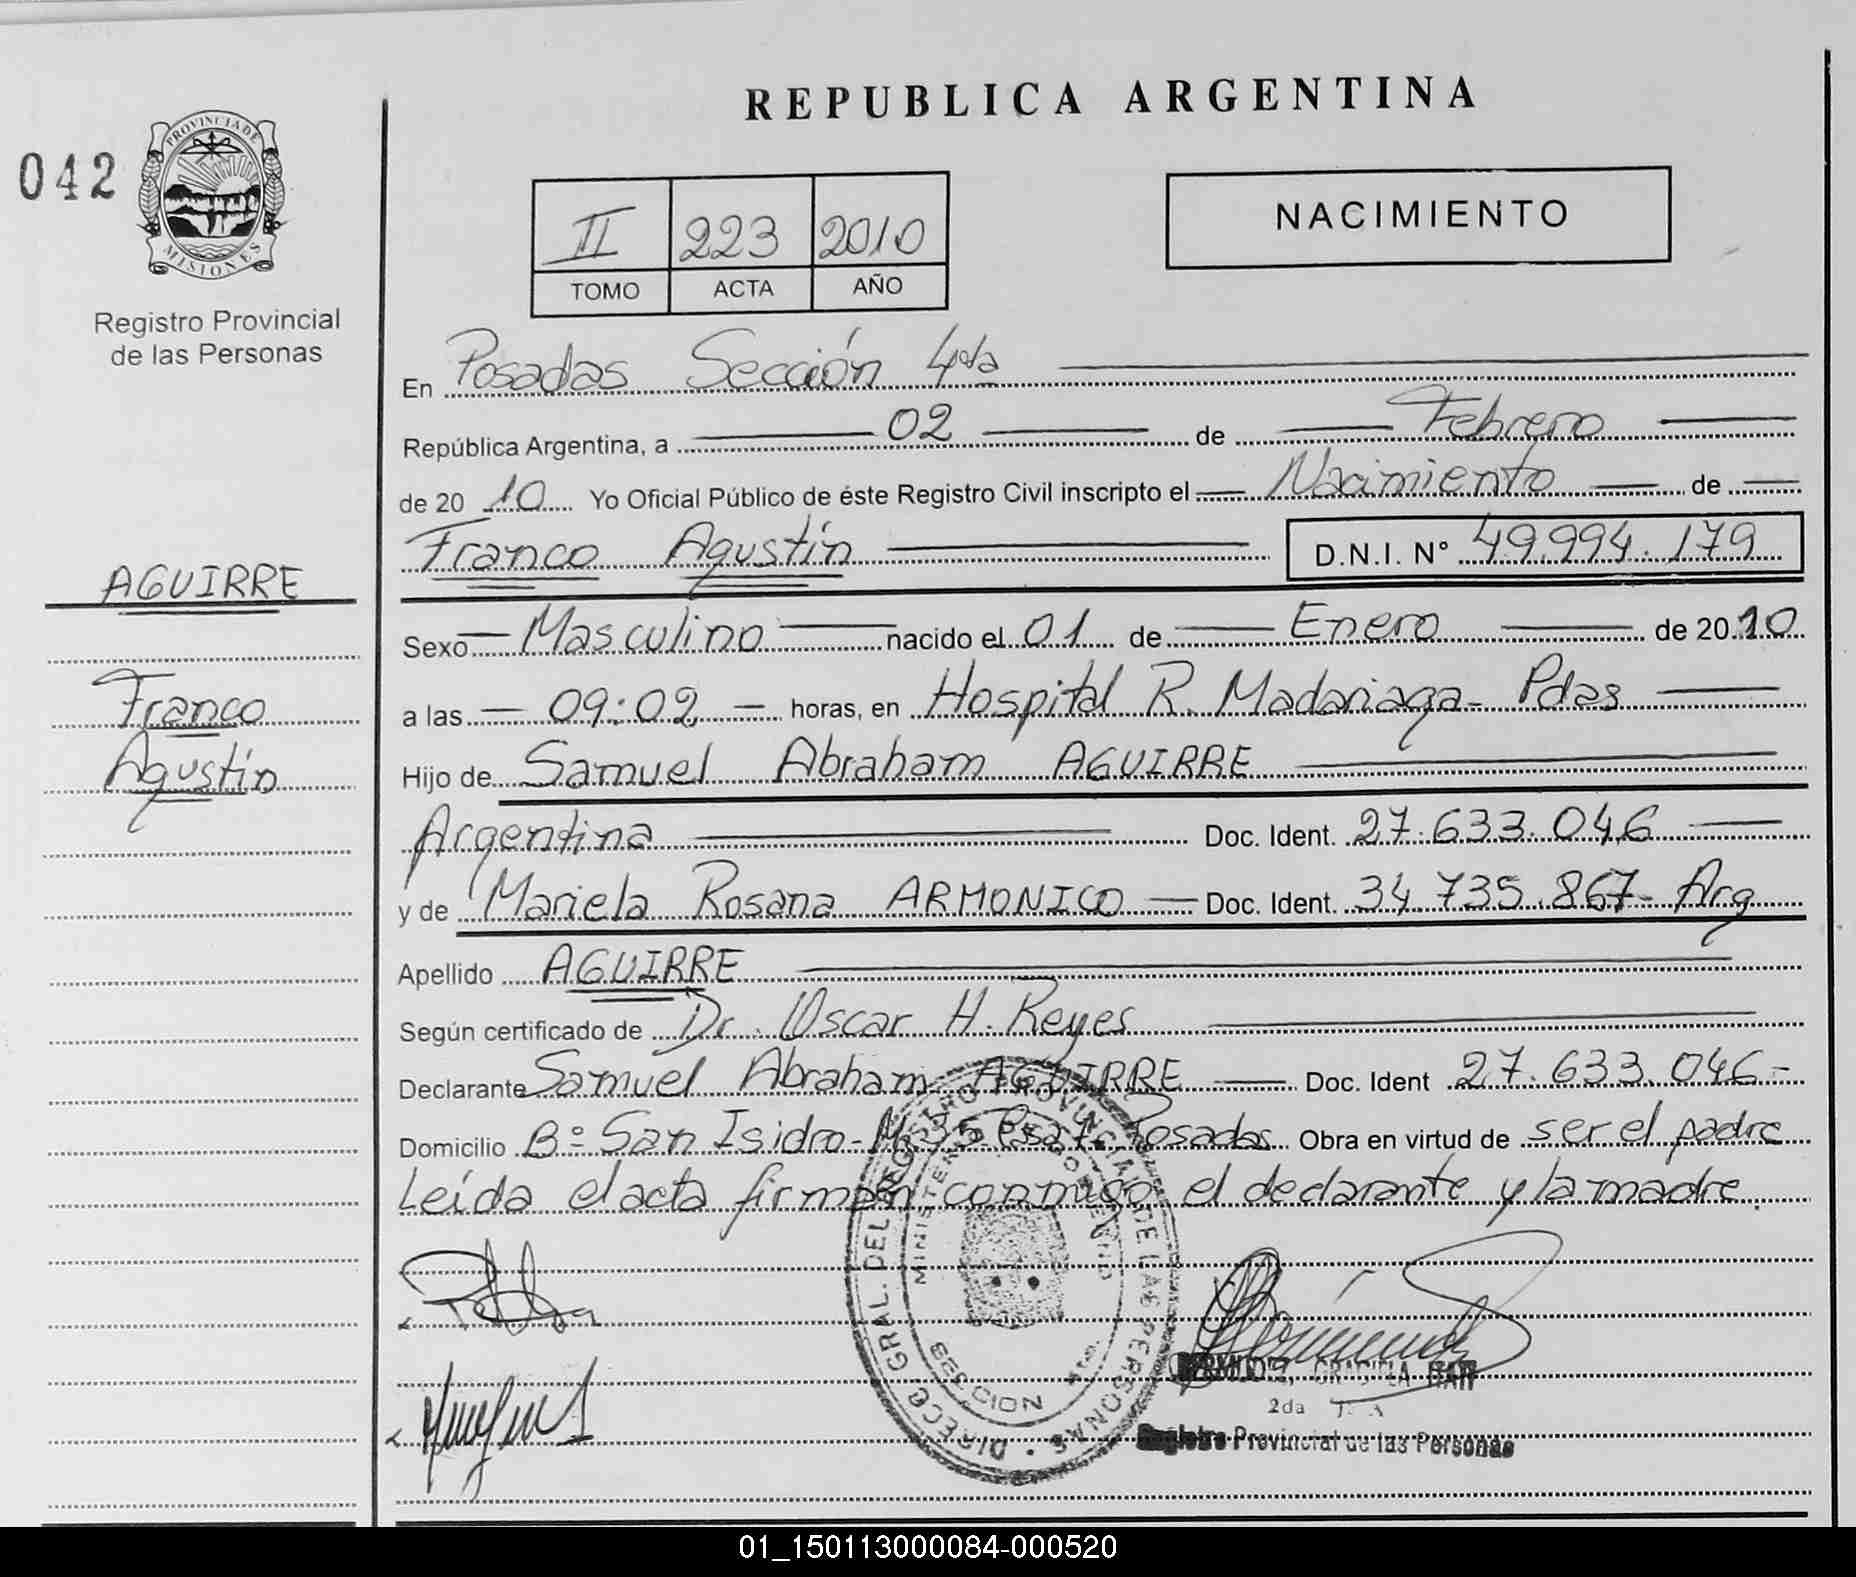 REPUBLICA ARGENTINA
042
PROVINCIA DE
MISIONES
Registro Provincial
de las Personas
II 223 2010
TOMO ACTA AÑO
NACIMIENTO
En Posadas Sección 4ta
República Argentina, a 02 de Febrero
de 20 10 Yo Oficial Público de éste Registro Civil inscripto el Nacimiento de
Franco Agustín D.N.I. N° 49.994.179
AGUIRRE
Franco
Agustín
Sexo Masculino nacido el 01 de Enero de 20 10
a las 09:02 horas, en Hospital R. Madariaga - Pdas
Hijo de Samuel Abraham AGUIRRE
Argentina Doc. Ident. 27.633.046
y de Mariela Rosana ARMONICO Doc. Ident. 34.735.867 - Arg
Apellido AGUIRRE
Según certificado de Dr. Oscar H. Reyes
Declarante Samuel Abraham AGUIRRE Doc. Ident 27.633.046 -
Domicilio B° San Isidro - Posadas Obra en virtud de ser el padre
Leída el acta firman conmigo el declarante y la madre.
DIRECC. GRAL. DEL REGISTRO PROVINCIAL DE LAS PERSONAS
MINISTERIO DE GOBIERNO
SECCION 4ta
GRACIELA
2da
Registro Provincial de las Personas
01_150113000084-000520